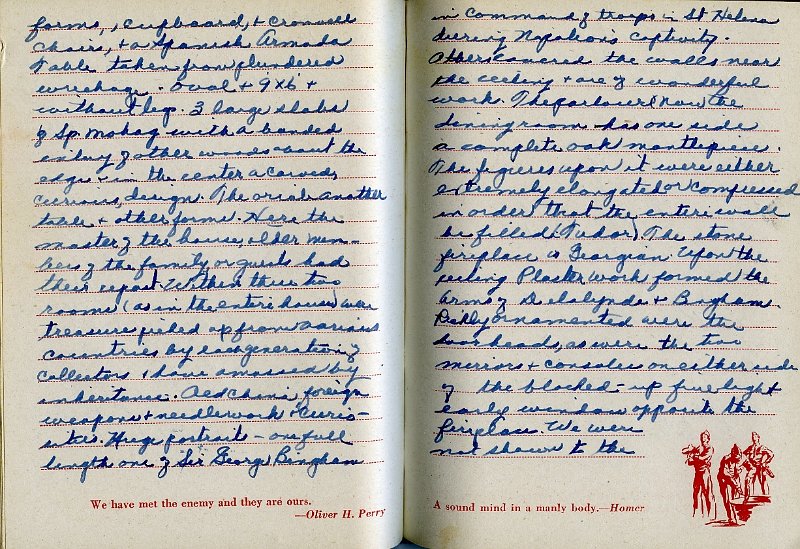 forms, Cupboard, & Cromwell
Chairs, & a Spanish Armada
Table taken from plundered
wreckage. Oval & 9x6 &
without legs. 3 large slabs
of Sp. Mahog with a banded
inlay of other woods about the
edge & in the center a carved,
curious, design. The oriah another
table & other forms. Here the
master of the house, elder mem-
bers of the family or guests had
their repast. Within these two
rooms (as in the entire house) were
treasure picked up from various
countries by each generation of
collectors & have amassed by
inheritance. Old China, foreign
weapons & needlework & curio-
sities. Huge portraits - one full
length one of Sir George Bingham
We have met the enemy and they are ours.
—Oliver H. Perry
in command of troops in St Helena
during Napoleon's captivity.
Others covered the walls near
the ceiling & are of wonderful
work. The parlour (now the
dining room has one side
a complete oak mantlepiece.
The figures upon it were either
extremely elongated or compressed
in order that the entire wall
be filled (Tudor) The stone
fireplace is Georgian. Upon the
ceiling Plaster work formed the
arms of Delalynde & Bingham.
Richly ornamented were the
doorheads, as were the two
mirrors & consoles on either side
of the blocked-up five light
early window opposite the
fireplace. We were
not shown to the
A sound mind in a manly body.—Homer